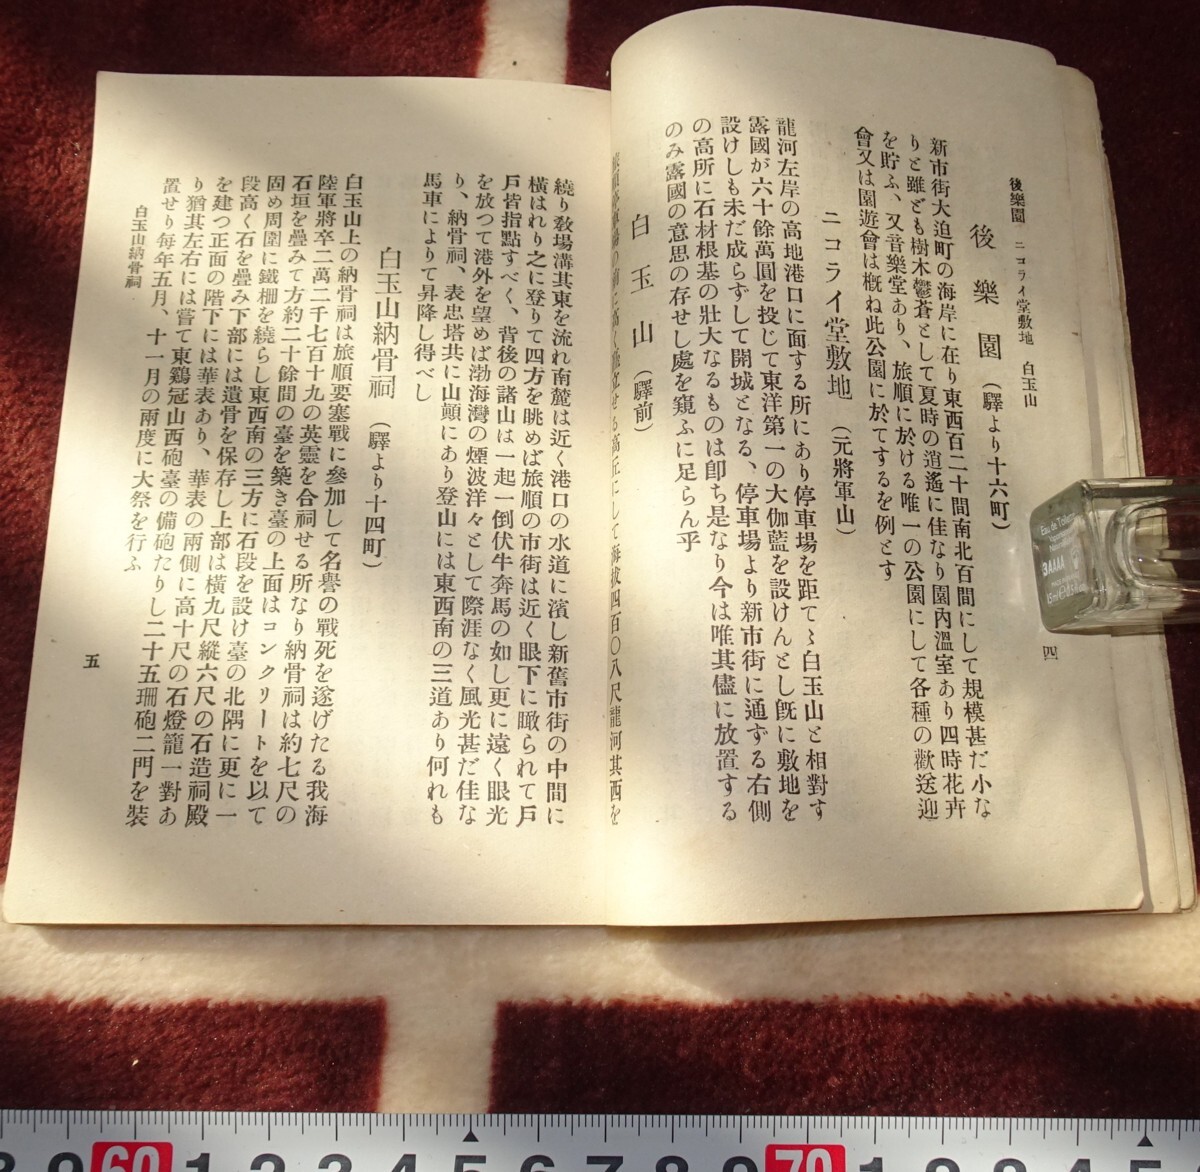 後樂園 ニコライ堂敷地 白玉山
四
後樂園 (驛より十六町)
新市街大迫町の海岸に在り東西百二十間南北百間にして規模甚だ小な
りと雖ども樹木鬱蒼として夏時の逍遙に佳なり園內溫室あり四時花卉
を貯ふ、又音樂堂あり、旅順に於ける唯一の公園にして各種の歡送迎
會又は園遊會は槪ね此公園に於てするを例とす
ニコライ堂敷地 (元將軍山)
龍河左岸の高地港口に面する所にあり停車場を距てゝ白玉山と相對す
露國が六十餘萬圓を投じて東洋第一の大伽藍を設けんとし旣に敷地を
設けしも未だ成らずして開城となる、停車場より新市街に通ずる右側
の高所に石材根基の壯大なるものは卽ち是なり今は唯其儘に放置する
のみ露國の意思の存せし處を窺ふに足らん乎
白玉山 (驛前)
せる高丘にして海拔四百〇八尺龍河其西を
繞り敎場溝其東を流れ南麓は近く港口の水道に濱し新舊市街の中間に
橫はれり之に登りて四方を眺めば旅順の市街は近く眼下に瞰られて戶
戶皆指點すべく、背後の諸山は一起一倒伏牛奔馬の如し更に遠く眼光
を放つて港外を望めば渤海灣の煙波洋々として際涯なく風光甚だ佳な
り、納骨祠、表忠塔共に山巓にあり登山には東西南の三道あり何れも
馬車によりて昇降し得べし
白玉山納骨祠 (驛より十四町)
白玉山上の納骨祠は旅順要塞戰に參加して名譽の戰死を遂げたる我海
陸軍將卒二萬二千七百十九の英靈を合祠せる所なり納骨祠は約七尺の
石垣を疊みて方約二十餘間の臺を築き臺の上面はコンクリートを以て
固め周圍に鐵柵を繞らし東西南の三方に石段を設け臺の北隅に更に一
段高く石を疊み下部には遺骨を保存し上部は橫九尺縱六尺の石造祠殿
を建つ正面の階下には華表あり、華表の兩側に高十尺の石燈籠一對あ
り猶其左右には嘗て東鷄冠山西砲臺の備砲たりし二十五珊砲二門を裝
置せり每年五月、十一月の兩度に大祭を行ふ
白玉山納骨祠
五
Eau de Toilette
3AAAA
15ml
60 1 2 3 4 5 6 7 8 9 70 1 2 3 4 5